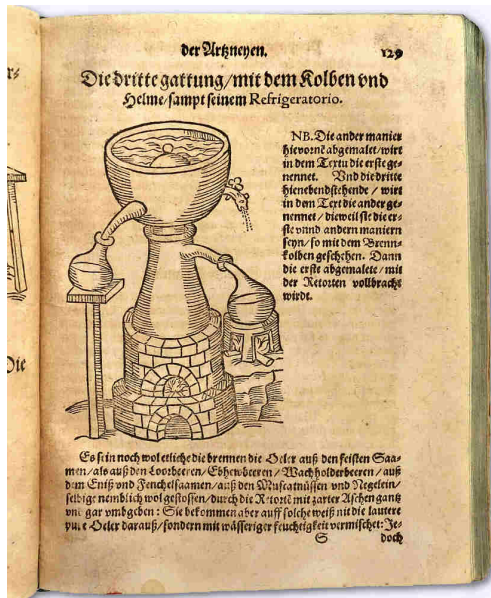 der Artzneyen.
129
Die dritte gattung/mit dem Kolben vnd
Helme/sampt seinem Refrigeratorio.
NB. Die ander manier
hievornē abgemalet/wirt
in dem Textu die erste ge-
nennet. Vnd die dritte
hienebendstehende/wirt
in dem Text die ander ge-
nennet/dieweil sie die er-
ste vnnd andern maniern
seyn/so mit dem Brenn-
kolben geschehen. Dann
die erste abgemalete/mit
der Retorten vollbracht
wirdt.
Die
Es sein noch wol etliche die brennen die Oeler auß den feisten Saa-
men/als auß den Loorbeeren/Ebhewbeeren/Wachholderbeeren/auß
dem Eniß vnd Fenchelsaamen/auß den Muscatnüssen vnd Negelein/
selbige nemblich wol gestossen/durch die Retortē mit zarter Aschen gantz
vnd gar vmbgeben: Sie bekommen aber auff solche weiß nit die lautere
pure Oeler darauß/sondern mit wässeriger feuchtigkeit vermischet: Je-
S doch